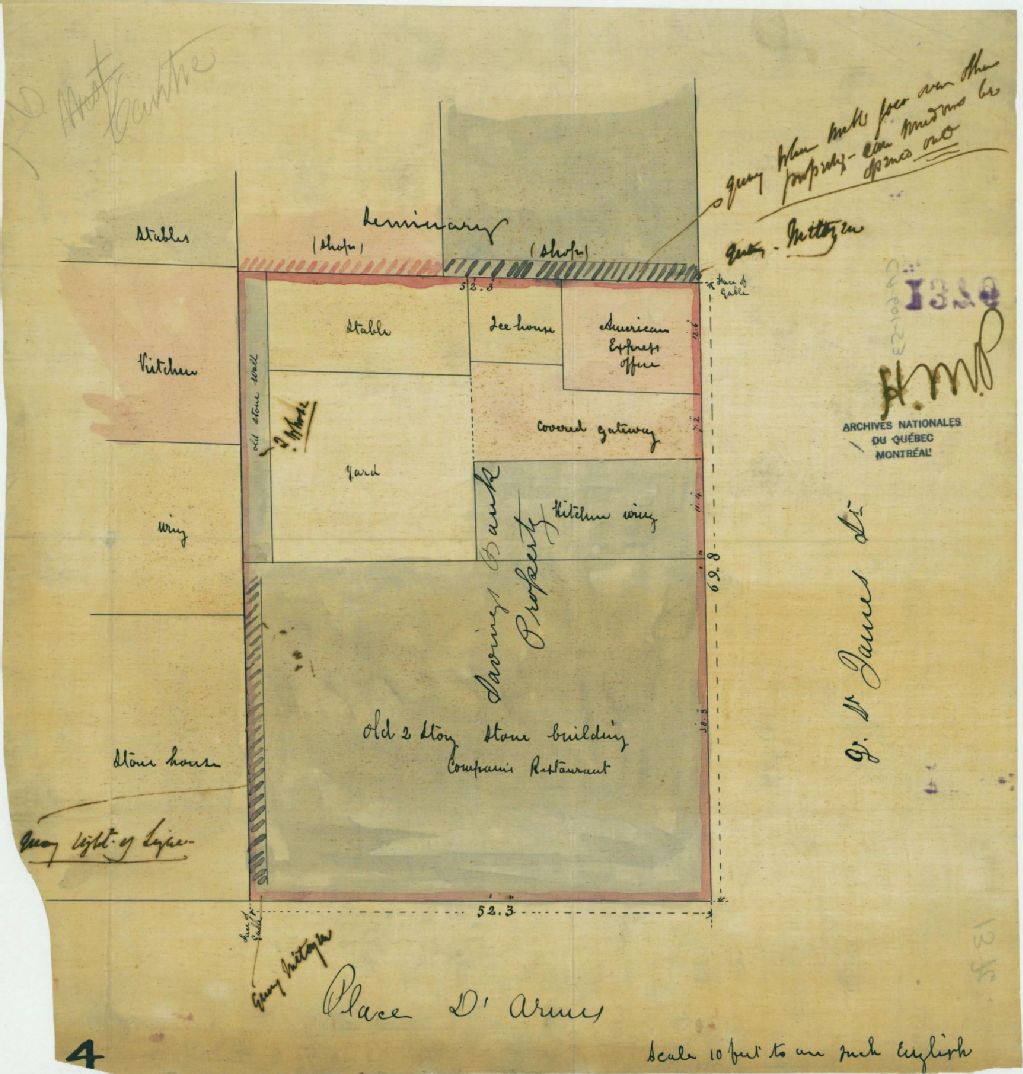 West
Centre
Query when walls goes over other
property - can windows be
opened out
Query - Mitoyen
Stables
Seminary
(shops)
(shops)
52.3
Face of
Gable
1380
H.M.P.
ARCHIVES NATIONALES
DU QUÉBEC
MONTRÉAL
Kitchen
old stone wall
? Whose
Stable
Ice house
American
Express
office
12.6
Covered gateway
7.2
Yard
Kitchen wing
11.4
Wing
Savings Bank
Property
69.8
Gt. St. James St.
Old 2 Story Stone building
Compain's Restaurant
38.8
Stone house
Query Light of
52.3
Face of
Gable
Query Mitoyen
Place D' Armes
4
Scale 10 feet to one inch English